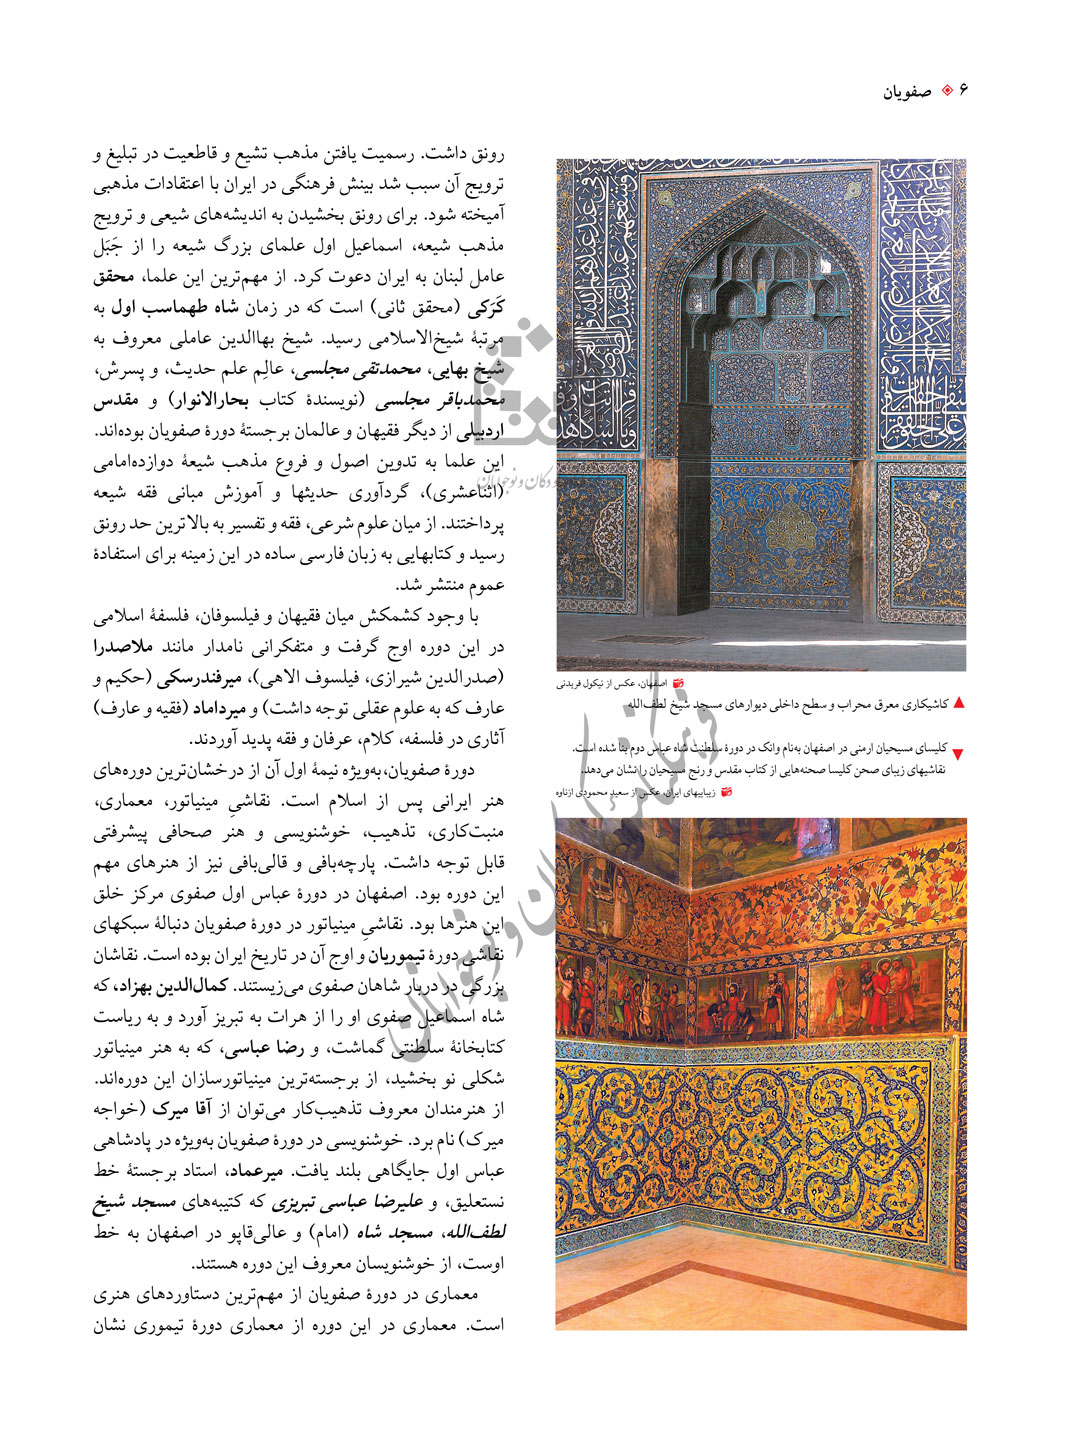 ۶ صفویان
رونق داشت. رسمیت یافتن مذهب تشیع و قاطعیت در تبلیغ و
ترویج آن سبب شد بینش فرهنگی در ایران با اعتقادات مذهبی
آمیخته شود. برای رونق بخشیدن به اندیشه‌های شیعی و ترویج
مذهب شیعه، اسماعیل اول علمای بزرگ شیعه را از جَبَل
عامل لبنان به ایران دعوت کرد. از مهم‌ترین این علما، محقق
کَرَکی (محقق ثانی) است که در زمان شاه طهماسب اول به
مرتبهٔ شیخ‌الاسلامی رسید. شیخ بهاالدین عاملی معروف به
شیخ بهایی، محمدتقی مجلسی، عالِم علم حدیث، و پسرش،
محمدباقر مجلسی (نویسندهٔ کتاب بحارالانوار) و مقدس
اردبیلی از دیگر فقیهان و عالمان برجستهٔ دورهٔ صفویان بوده‌اند.
این علما به تدوین اصول و فروع مذهب شیعهٔ دوازده‌امامی
(اثناعشری)، گردآوری حدیثها و آموزش مبانی فقه شیعه
پرداختند. از میان علوم شرعی، فقه و تفسیر به بالاترین حد رونق
رسید و کتابهایی به زبان فارسی ساده در این زمینه برای استفادهٔ
عموم منتشر شد.
با وجود کشمکش میان فقیهان و فیلسوفان، فلسفهٔ اسلامی
در این دوره اوج گرفت و متفکرانی نامدار مانند ملاصدرا
(صدرالدین شیرازی، فیلسوف الاهی)، میرفندرسکی (حکیم و
عارف که به علوم عقلی توجه داشت) و میرداماد (فقیه و عارف)
آثاری در فلسفه، کلام، عرفان و فقه پدید آوردند.
دورهٔ صفویان،به‌ویژه نیمهٔ اول آن از درخشان‌ترین دوره‌های
هنر ایرانی پس از اسلام است. نقاشیِ مینیاتور، معماری،
منبت‌کاری، تذهیب، خوشنویسی و هنر صحافی پیشرفتی
قابل توجه داشت. پارچه‌بافی و قالی‌بافی نیز از هنرهای مهم
این دوره بود. اصفهان در دورهٔ عباس اول صفوی مرکز خلق
این هنرها بود. نقاشیِ مینیاتور در دورهٔ صفویان دنبالهٔ سبکهای
نقاشی دورهٔ تیموریان و اوج آن در تاریخ ایران بوده است. نقاشان
بزرگی در دربار شاهان صفوی می‌زیستند. کمال‌الدین بهزاد، که
شاه اسماعیل صفوی او را از هرات به تبریز آورد و به ریاست
کتابخانهٔ سلطنتی گماشت، و رضا عباسی، که به هنر مینیاتور
شکلی نو بخشید، از برجسته‌ترین مینیاتورسازان این دوره‌اند.
از هنرمندان معروف تذهیب‌کار می‌توان از آقا میرک (خواجه
میرک) نام برد. خوشنویسی در دورهٔ صفویان به‌ویژه در پادشاهی
عباس اول جایگاهی بلند یافت. میرعماد، استاد برجستهٔ خط
نستعلیق، و علیرضا عباسی تبریزی که کتیبه‌های مسجد شیخ
لطف‌الله، مسجد شاه (امام) و عالی‌قاپو در اصفهان به خط
اوست، از خوشنویسان معروف این دوره هستند.
معماری در دورهٔ صفویان از مهم‌ترین دستاوردهای هنری
است. معماری در این دوره از معماری دورهٔ تیموری نشان
اصفهان، عکس از نیکول فریدنی
کاشیکاری معرق محراب و سطح داخلی دیوارهای مسجد شیخ لطف‌الله
کلیسای مسیحیان ارمنی در اصفهان به‌نام وانک در دورهٔ سلطنت شاه عباس دوم بنا شده است.
نقاشیهای زیبای صحن کلیسا صحنه‌هایی از کتاب مقدس و رنج مسیحیان را نشان می‌دهد.
زیباییهای ایران، عکس از سعید محمودی ازناوه
فرهنگنامه کودکان و نوجوانان